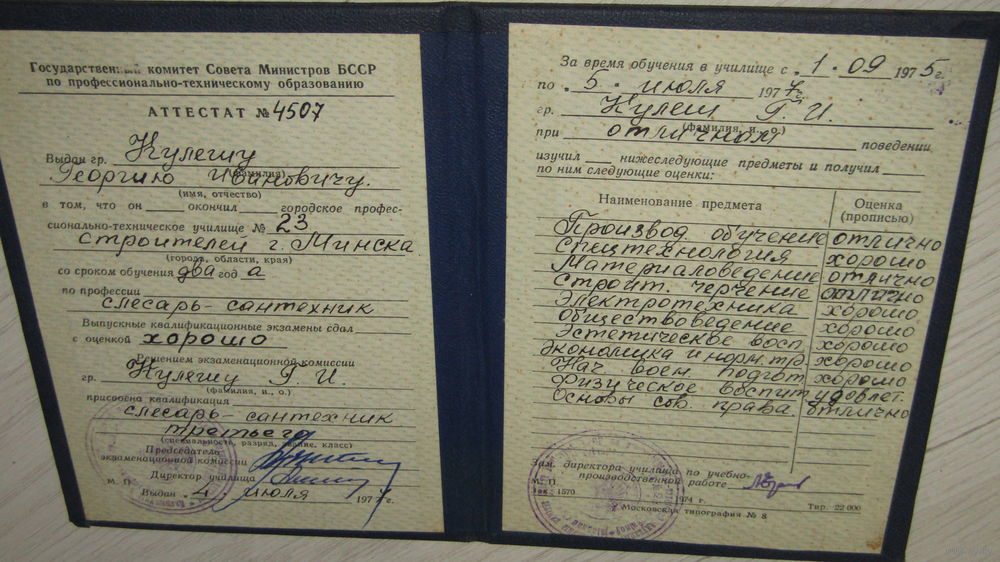 Государственный комитет Совета Министров БССР
по профессионально-техническому образованию
АТТЕСТАТ № 4507
Выдан гр. Кулешу
(фамилия)
Георгию Ивановичу.
(имя, отчество)
в том, что он окончил городское профес-
сионально-техническое училище № 23
строителей г. Минска
(города, области, края)
со сроком обучения два год а
по профессии
слесарь-сантехник
Выпускные квалификационные экзамены сдал
с оценкой хорошо
Решением экзаменационной комиссии
гр. Кулешу Г. И.
(фамилия, и., о.)
присвоена квалификация
слесарь-сантехник
третьего
(специальность, разряд, звание, класс)
Председатель
экзаменационной комиссии
Директор училища
М. П.
Выдан 4 июля 1977 г.
За время обучения в училище с 1.09 1975 г.
по 5 июля 1977 г.
гр. Кулеш Г. И.
(фамилия, и., о.)
при отличном поведении
изучил нижеследующие предметы и получил
по ним следующие оценки:
Наименование предмета Оценка
(прописью)
Производ обучение отлично
Спецтехнология хорошо
Материаловедение отлично
Строит. черчение отлично
Электротехника хорошо
Обществоведение хорошо
Эстетическое восп. хорошо
Экономика и норм. тр. хорошо
Нач воен. подгот хорошо
Физическое воспит удовлет.
Основы сов. права отлично
Зам. директора училища по учебно-
производственной работе
М. П.
Зак. 1570 1974 г. Тир. 22 000
Московская типография № 8